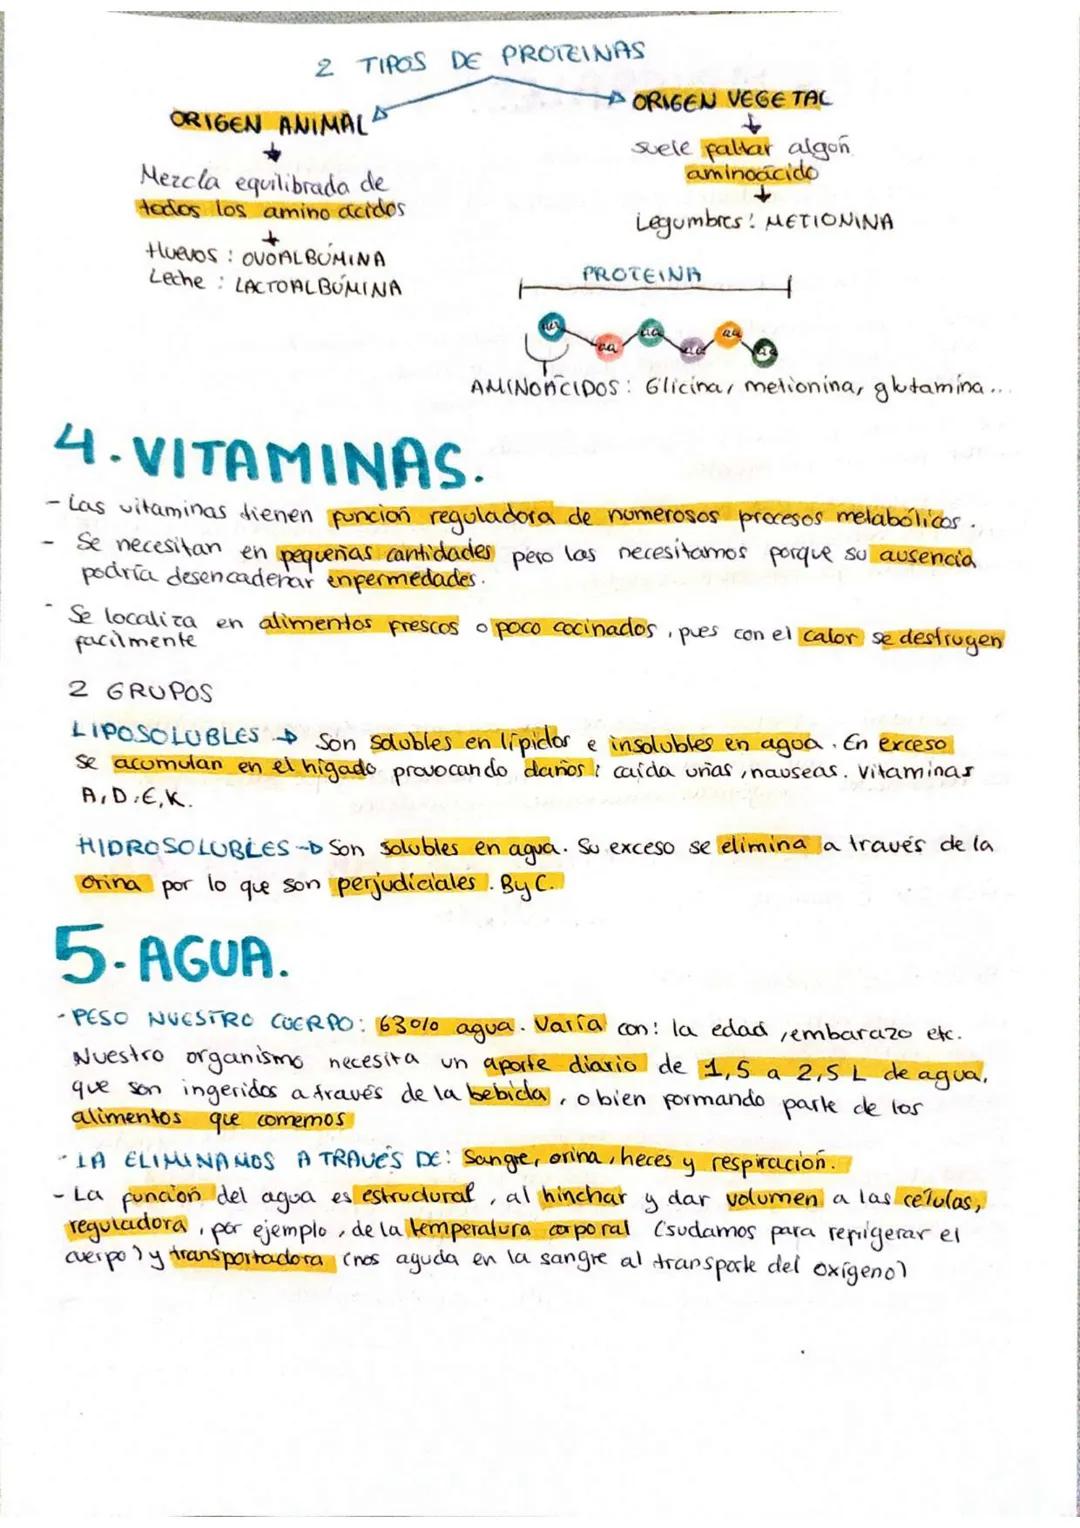 2 TIPOS DE PROTEINAS
ORIGEN ANIMAL
Mezcla equilibrada de
todos los amino ácidos
Huevos : OVOALBÚMINA
Leche : LACTOALBÚMINA
ORIGEN VEGETAL
suele faltar algún
aminoácido
Legumbres: METIONINA
PROTEINA
aa aa aa aa aa aa
AMINOÁCIDOS: Glicina, metionina, glutamina...
4. VITAMINAS.
- Las vitaminas tienen función reguladora de numerosos procesos metabólicos.
- Se necesitan en pequeñas cantidades pero las necesitamos porque su ausencia
podría desencadenar enfermedades.
- Se localiza en alimentos frescos o poco cocinados, pues con el calor se destruyen
facilmente
2 GRUPOS
LIPOSOLUBLES → Son solubles en lípidos e insolubles en agua. En exceso
se acumulan en el hígado provocando daños: caída uñas, nauseas. Vitaminas
A, D, E, K.
HIDROSOLUBLES → Son solubles en agua. Su exceso se elimina a través de la
orina por lo que son perjudiciales. B y C.
5. AGUA.
- PESO NUESTRO CUERPO: 63% agua. Varía con: la edad, embarazo etc.
Nuestro organismo necesita un aporte diario de 1,5 a 2,5 L de agua,
que son ingeridos a través de la bebida, o bien formando parte de los
alimentos que comemos
- LA ELIMINAMOS A TRAVÉS DE: Sangre, orina, heces y respiración.
- La función del agua es estructural, al hinchar y dar volumen a las células,
reguladora, por ejemplo, de la temperatura corporal (sudamos para refrigerar el
cuerpo) y transportadora (nos ayuda en la sangre al transporte del oxígeno)